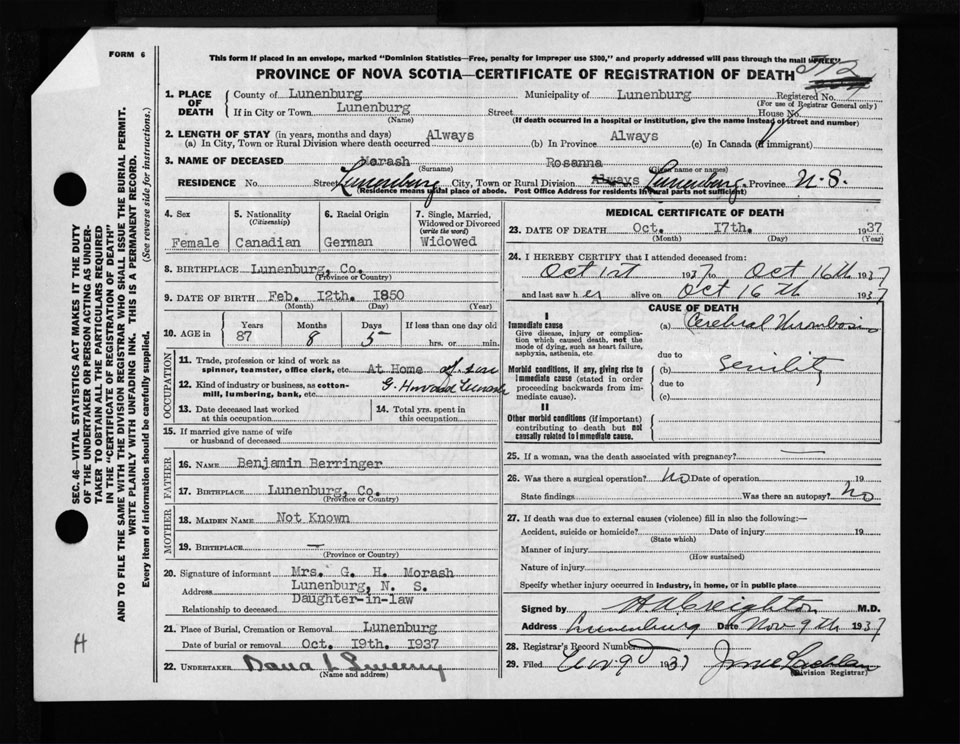 FORM 6
This form if placed in an envelope, marked "Dominion Statistics—Free, penalty for improper use $300," and properly addressed will pass through the mail "FREE"
PROVINCE OF NOVA SCOTIA—CERTIFICATE OF REGISTRATION OF DEATH
1. PLACE OF DEATH
County of Lunenburg Municipality of Lunenburg Registered No.
(For use of Registrar General only)
If in City or Town Lunenburg Street House No.
(Name) (If death occurred in a hospital or institution, give the name instead of street and number)
2. LENGTH OF STAY (in years, months and days) Always Always
(a) In City, Town or Rural Division where death occurred (b) In Province (c) In Canada (if immigrant)
3. NAME OF DECEASED Morash Rosanna
(Surname) (Given name or names)
RESIDENCE No. Street Lunenburg City, Town or Rural Division Always Lunenburg Province N.S.
(Residence means usual place of abode. Post Office Address for residents in rural parts not sufficient)
4. Sex
Female
5. Nationality
(Citizenship)
Canadian
6. Racial Origin
German
7. Single, Married, Widowed or Divorced
(write the word)
Widowed
8. BIRTHPLACE Lunenburg, Co.
(Province or Country)
9. DATE OF BIRTH Feb. 12th. 1850
(Month) (Day) (Year)
10. AGE in Years Months Days If less than one day old
87 8 5 hrs. or min.
OCCUPATION
11. Trade, profession or kind of work as spinner, teamster, office clerk, etc. At Home of son
12. Kind of industry or business, as cotton-mill, lumbering, bank, etc. G. Howard
13. Date deceased last worked at this occupation
14. Total yrs. spent in this occupation
15. If married give name of wife or husband of deceased
FATHER
16. NAME Benjamin Berringer
17. BIRTHPLACE Lunenburg, Co.
(Province or Country)
MOTHER
18. MAIDEN NAME Not Known
19. BIRTHPLACE —
(Province or Country)
20. Signature of informant Mrs. G. H. Morash
Address Lunenburg, N. S.
Relationship to deceased Daughter-in-law
21. Place of Burial, Cremation or Removal Lunenburg
Date of burial or removal Oct. 19th. 1937
22. UNDERTAKER Dana L Sweeny
(Name and address)
MEDICAL CERTIFICATE OF DEATH
23. DATE OF DEATH Oct. 17th. 1937
(Month) (Day) (Year)
24. I HEREBY CERTIFY that I attended deceased from:
Oct 1st 1937 to Oct 16th 1937
and last saw her alive on Oct 16th 1937
CAUSE OF DEATH
I
Immediate cause
Give disease, injury or complication which caused death, not the mode of dying, such as heart failure, asphyxia, asthenia, etc.
(a) Cerebral Thrombosis
due to
Morbid conditions, if any, giving rise to immediate cause (stated in order proceeding backwards from immediate cause).
(b) Senility
due to
(c)
II
Other morbid conditions (if important) contributing to death but not causally related to immediate cause.
25. If a woman, was the death associated with pregnancy? —
26. Was there a surgical operation? No Date of operation 19
State findings Was there an autopsy? No
27. If death was due to external causes (violence) fill in also the following:—
Accident, suicide or homicide? Date of injury 19
(State which)
Manner of injury
(How sustained)
Nature of injury
Specify whether injury occurred in industry, in home, or in public place
Signed by H A Creighton M.D.
Address Lunenburg Date Nov 9th 1937
28. Registrar's Record Number
29. Filed 1937
(Division Registrar)
SEC. 46—VITAL STATISTICS ACT MAKES IT THE DUTY
OF THE UNDERTAKER OR PERSON ACTING AS UNDER-
TAKER TO OBTAIN ALL THE PARTICULARS REQUIRED
IN THE "CERTIFICATE OF REGISTRATION OF DEATH"
AND TO FILE THE SAME WITH THE DIVISION REGISTRAR WHO SHALL ISSUE THE BURIAL PERMIT.
WRITE PLAINLY WITH UNFADING INK. THIS IS A PERMANENT RECORD.
Every item of information should be carefully supplied. (See reverse side for instructions.)
H